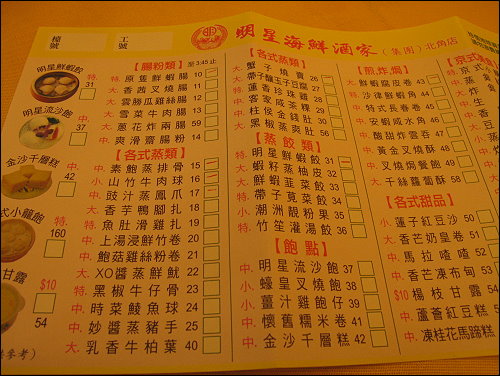 檯號
工號
明星海鮮酒家(集團)北角店
明星鮮蝦餃
特.
31
明星流沙飽
中.
37
金沙千層糕
中.
42
式小籠飽
特.
160
甘露
$10
中.
54
【腸粉類】至3:45止
特. 原隻鮮蝦腸 10
特. 香茜叉燒腸 11
大. 雲勝瓜雞絲腸 12
大. 雪菜牛肉腸 13
大. 蔥花炸兩腸 59
中. 爽滑齋腸粉 14
【各式蒸類】
中. 素鮑蒸排骨 15
小. 山竹牛肉球 16
中. 豉汁蒸鳳爪 17
大. 香芋鴨腳扎 18
特. 魚肚滑雞扎 19
中. 上湯浸鮮竹卷 20
中. 鮑菇雞絲粉卷 21
大. XO醬蒸鮮魷 22
特. 黑椒牛仔骨 23
中. 時菜鯪魚球 24
中. 妙醬蒸豬手 25
大. 乳香牛柏葉 40
【各式蒸類】
大. 蟹子燒賣 26
特. 帶子釀玉子豆腐 27
特. 蓮香珍珠雞 28
中. 客家咸茶粿 29
中. 柱侯金錢肚 30
大. 黑椒蒸爽肚 56
【蒸餃類】
特. 明星鮮蝦餃 31
大. 蝦籽蒸柚皮 32
大. 鮮蝦韭菜餃 33
特. 帶子莧菜餃 34
小. 潮洲靚粉果 35
特. 竹笙灌湯餃 36
【飽點】
中. 明星流沙飽 37
小. 蠔皇叉燒飽 38
小. 薑汁雞飽仔 39
中. 懷舊糯米卷 41
中. 金沙千層糕 42
【煎炸焗】
大. 鮮蝦腐皮卷 43
小. 44
中. 特式長春卷 45
中. 安蝦咸水角 46
中. 酸甜炸雲吞 47
中. 黃金叉燒酥 48
中. 叉燒焗餐飽 49
大. 千絲蘿蔔酥 58
【各式甜品】
小. 蓮子紅豆沙 50
大. 香芒奶皇卷 51
中. 馬拉喳喳 52
中. 香芒凍布甸 53
$10 楊枝甘露 54
中. 蘆薈紅豆糕 5
中. 凍桂花馬蹄糕
【京式